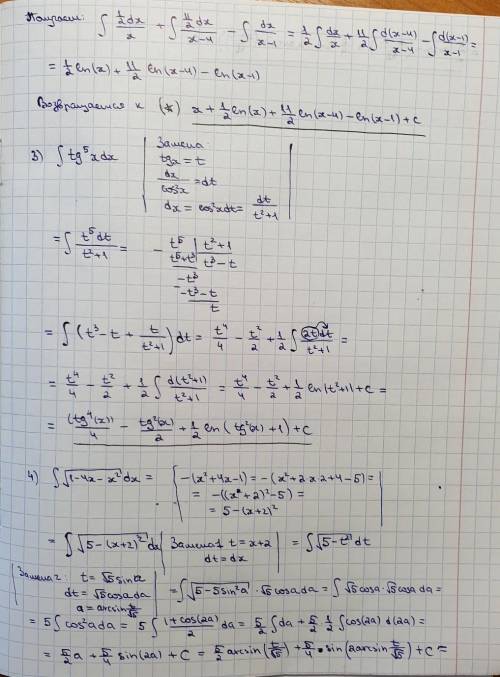 Получаем: ∫ (1/2 dx)/x + ∫ (11/2 dx)/(x-4) - ∫ dx/(x-1) = 1/2 ∫ dx/x + 11/2 ∫ d(x-4)/(x-4) - ∫ d(x-1)/(x-1) =
= 1/2 ln(x) + 11/2 ln(x-4) - ln(x-1)
Возвращаемся к (*) x + 1/2 ln(x) + 11/2 ln(x-4) - ln(x-1) + C
3) ∫ tg⁵x dx
Замена:
tgx = t
dx/cos²x = dt
dx = cos²x dt = dt/(t²+1)
= ∫ t⁵dt/(t²+1) =
- t⁵ | t²+1
t⁵+t³ | t³-t
-t³
- -t³-t
t
= ∫ (t³ - t + t/(t²+1)) dt = t⁴/4 - t²/2 + 1/2 ∫ 2t dt/(t²+1) =
= t⁴/4 - t²/2 + 1/2 ∫ d(t²+1)/(t²+1) = t⁴/4 - t²/2 + 1/2 ln|t²+1| + C =
= (tg⁴(x))/4 - tg²(x)/2 + 1/2 ln(tg²(x)+1) + C
4) ∫ √(1-4x-x²) dx =
-(x²+4x-1) = -(x²+2×2+4-5) =
= -((x+2)²-5) =
= 5-(x+2)²
= ∫ √(5-(x+2)²) dx | Замена 1 t = x+2 | = ∫ √(5-t²) dt
dt = dx
Замена 2: t = √5 sin a
dt = √5 cos a da
a = arcsin t/√5
= ∫ √(5-5sin²a) · √5 cos a da = ∫ √5 cos a · √5 cos a da =
= 5∫ cos²a da = 5∫ (1+cos(2a))/2 da = 5/2 ∫ da + 5/2 1/2 ∫ cos(2a) d(2a) =
= 5/2 a + 5/4 sin(2a) + C = 5/2 arcsin(t/√5) + 5/4 · sin(2arcsin t/√5) + C =